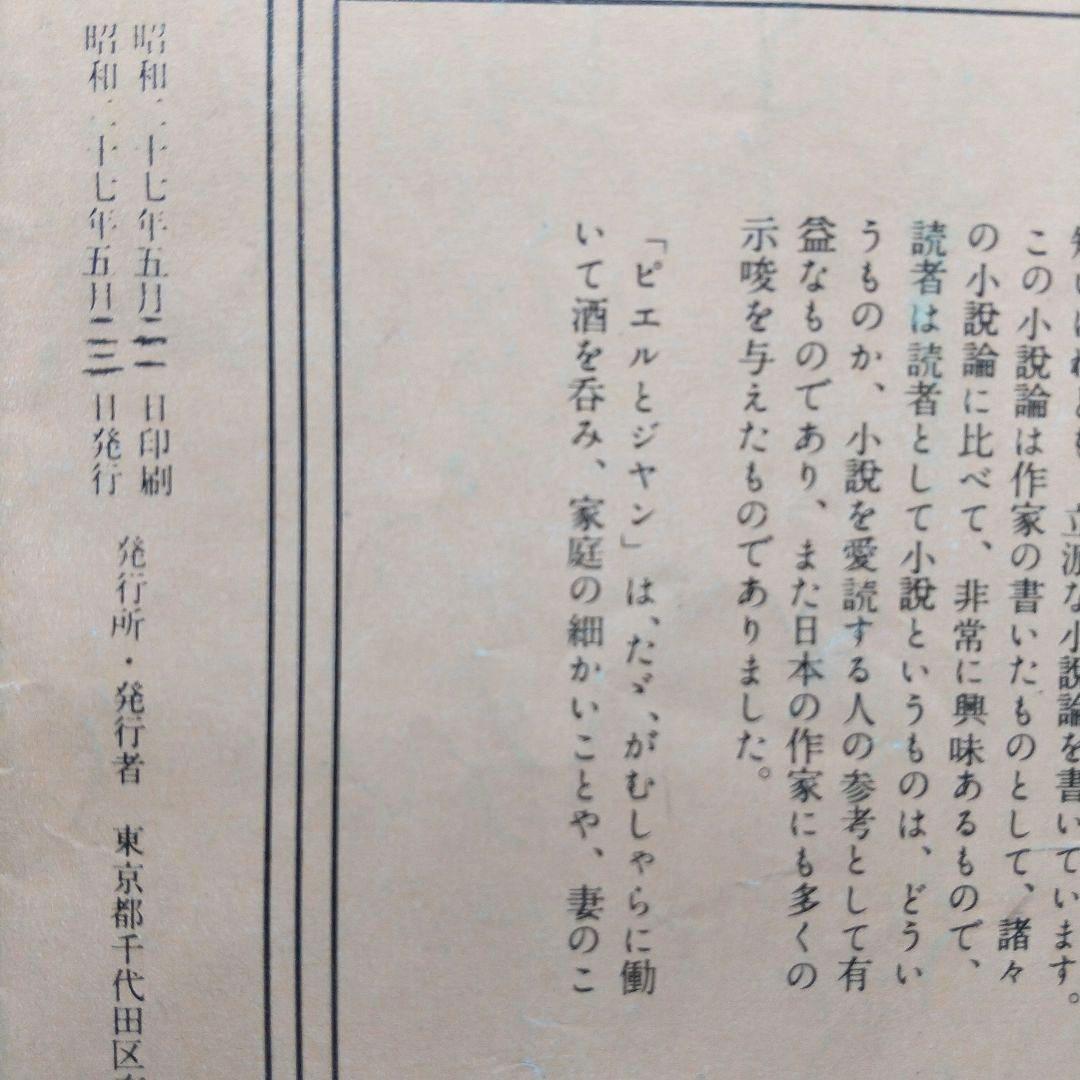 立派な小説論を書いています。
この小説論は作家の書いたものとして、諸々
の小説論に比べて、非常に興味あるもので、
読者は読者として小説というものは、どうい
うものか、小説を愛読する人の参考として有
益なものであり、また日本の作家にも多くの
示唆を与えたものでありました。
「ピエルとジヤン」は、たゞ、がむしゃらに働
いて酒を呑み、家庭の細かいことや、妻のこ
昭和二十七年五月二十一日印刷
昭和二十七年五月二十三日発行
発行所・発行者 東京都千代田区